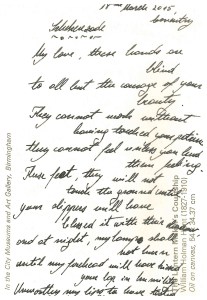 18th March 2005,
Coventry
Scheherazade
My love, these hands are
blind
to all but the courage of your
beauty,
They cannot work without
having touched your picture
they cannot feel unless you lend
them feeling
These feet, they will not
touch the ground until
your slippers will have
blessed it with their
and at night, my lamp shall
not burn
until my forehead will have
your leg in
Unworthy my lips to have
In the City Museums and Art Gallery, Birmingham
's Courtship
William Holman Hunt (1827-1910)
Oil on canvas,